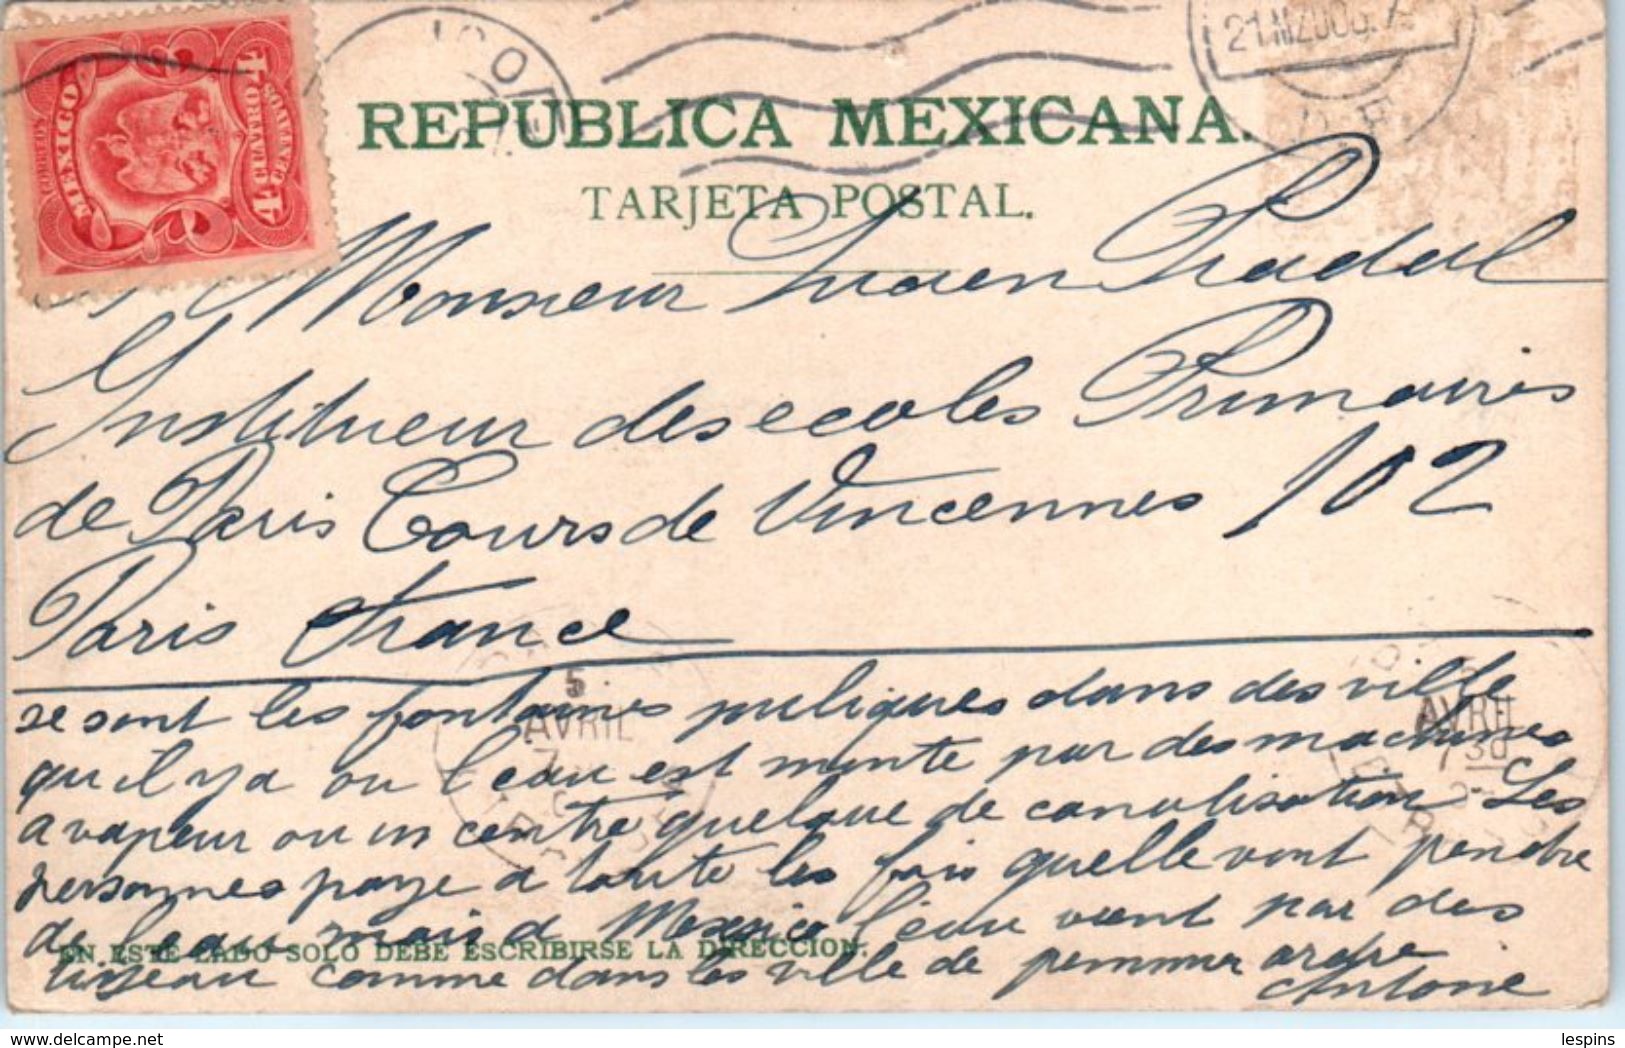 CORREOS
MEXICO
4 CUATRO CENTAVOS 4
21 MZO 06. 7
REPUBLICA MEXICANA.
TARJETA POSTAL.
Monsieur Lucien Pradel
Institueur des ecoles Primaires
de Paris Cours de Vincennes 102
Paris France
5
AVRIL
AVRIL
7 30
se sont les fontaines puliques dans des ville
qu il y a ou l'eau est monte par des machines
a vapeur ou un centre quelque de canalisation. Les
personnes paye a toute les fois quelle vont pendre
de l'eau mais a Mexico l'eau vient par des
tuyeau comme dans les ville de premmier ordre
EN ESTE LADO SOLO DEBE ESCRIBIRSE LA DIRECCION.
Antoine
lespins